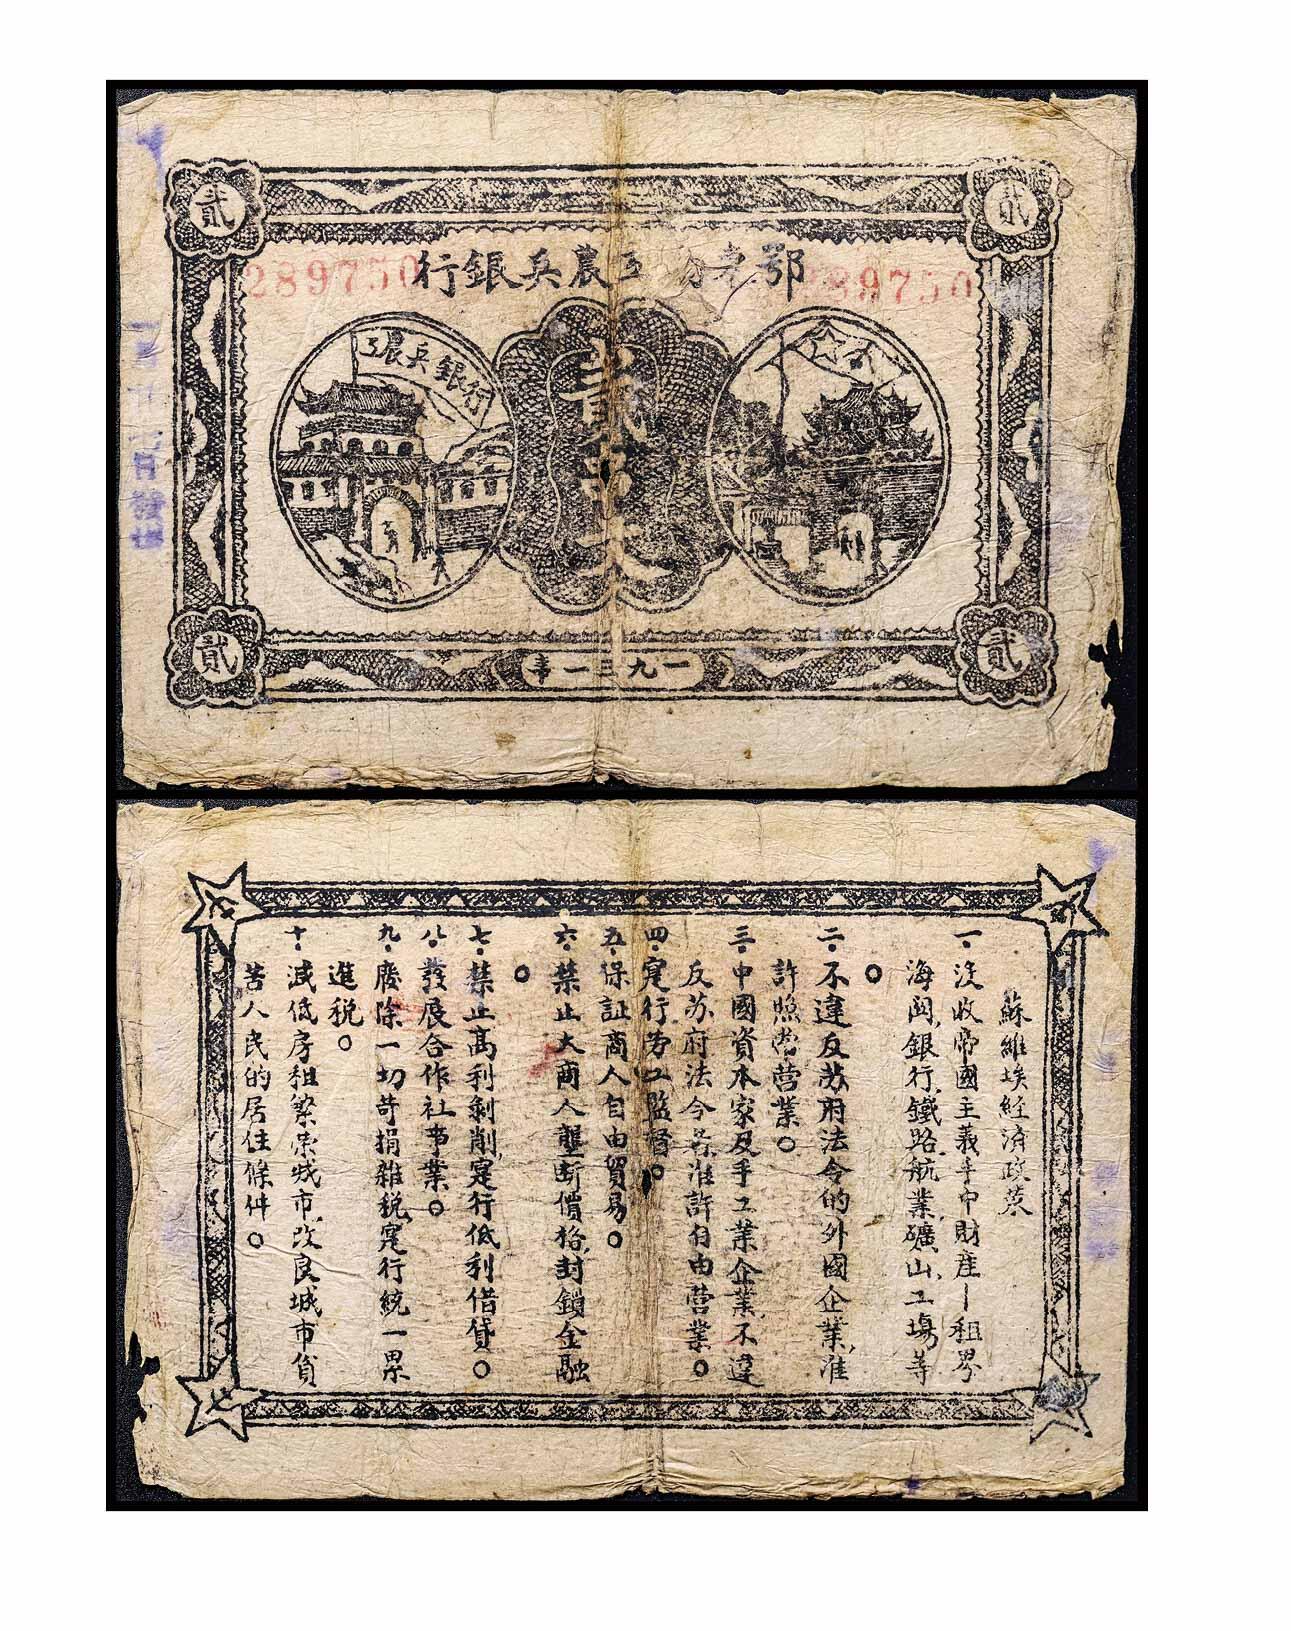 貳
貳
鄂東 工農兵銀行
289750
289750
工農兵銀行
貳
一九三一年
貳
貳
蘇維埃経済政策
一·没收帝國主義手中財產—租界
海関,銀行,鐵路,航業,礦山,工塲等
。
二·不違反苏府法令的外國企業,准
許照常营業。
三·中國資本家及手工業企業,不違
反苏府法令者,准許自由营業。
四·寔行劳工監督。
五·保証商人自由貿易。
六·禁止大商人壟断價格,封鎖金融
。
七·禁止高利剝削,寔行低利借貸。
八·發展合作社事業。
九·廢除一切苛捐雜税,寔行統一累
進税。
十·减低房租繁荣城市,改良城市貧
苦人民的居住條件。